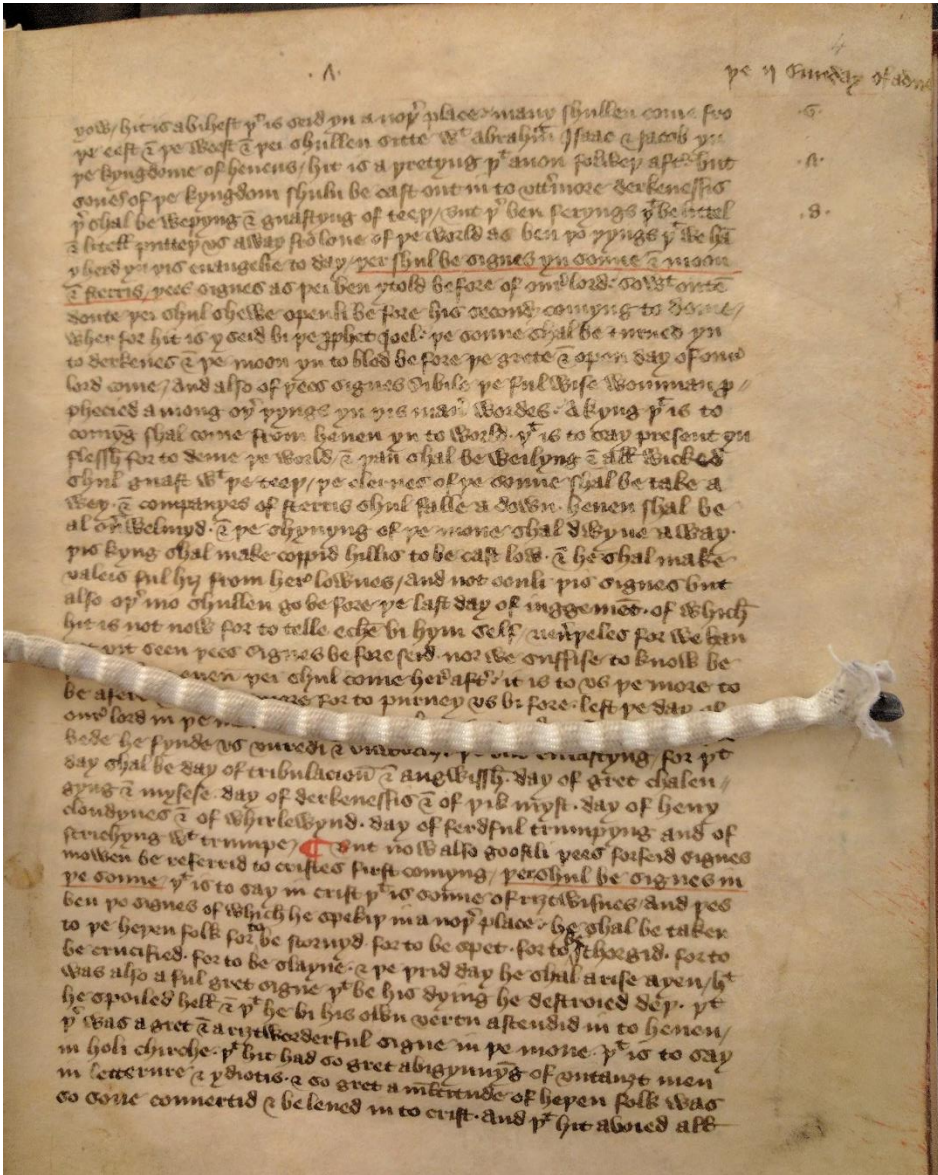 .A.
þe ij Sunday of adue
yow / hit is a bihest þt is seid yn a noþr place. many shullen come fro
þe eest & þe west & þei shullen sitte wt abraham Isaac & Jacob yn
þe kyngdome of heuens / hit is a þretyng þt anon folweþ aftr. but
sones of þe kyngdom shuln be cast out in to vttrmore derkenessis
þr shal be wepyng & gnastyng of teeþ / but þr ben seryngs þt be littel
& litell putteþ vs away fro loue of þe world as ben þo þyngs þt we han
yherd yn þis euangelie to day / þer shul be signes yn sonne & moon
& sterris / þees signes as þei ben ytold before of our lord. so wt outen
doute þei shul shewe openli be fore his second comyng to dome /
wher for hit is y seid bi þe prophet Joel. þe sonne shal be turned yn
to derkenes & þe moon yn to blod be fore þe grete & open day of our
lord come / And also of þees signes Sibile þe ful wise womman p
phecied a mong oþr þyngs yn þis manr wordes. A kyng þt is to
comyng shal come from heuen yn to world. þt is to say present yn
flessh for to deme þe world / & þan shal be weilyng & all wicked
shul gnast wt þe teeþ / þe clernes of þe sonne shal be take a
wey. & companyes of sterris shul falle a down. heuen shal be
al ouer welmyd. & þe shynyng of þe mone shal dwyne a way.
þis kyng shal make coppid hillis to be cast low. & he shal make
valeis ful hij from her lownes / and not oonli þis signes but
also oþr mo shullen go be fore þe last day of iuggement. of which
hit is not now for to telle eche bi hym self / neuerþeles for we han
not yit seen þees signes be fore seid. nor we suffise to know be
euen þei shul come her aftr. it is to vs þe more to
be afere more for to puruey vs bi fore. left þe day of
our lord in þe
bede he fynde vs vnredi & þe euerlastyng / for þt
day shal be day of tribulacion & angwissh. day of gret chalen
gyng & mysese. day of derkenessis & of þik myst. day of heuy
cloudynes & of whirlewynd. day of ferdful trumpyng and of
strichyng wt trumpe / ¶ But now also goostli þees forseid signes
mowen be referrid to cristes first comyng / þer shul be signes in
þe sonne / þt is to say in crist þt is sonne of riztwisnes / and þes
ben þe signes of which he spekiþ in a noþr place. he shal be taken
to þe heþen folk for to be scornyd. for to be spet. for to be schorgid. for to
be crucified. for to be slayne. & þe þrid day he shal arise ayen / hit
was also a ful gret signe þt be his dying he destroied deþ. þt
he spoiled hell & þt he bi his own vertu astendid in to heuen /
þr was a gret & a rizt wonderful signe in þe mone. þt is to say
in holi chirche. þt hit had so gret a bigynnyng of vntauzt men
in letterure & ydiotis. & so gret a multitude of heþen folk was
so sone conuertid & beleued in to crist. and þt hit auoied all
.G.
.A.
.B.